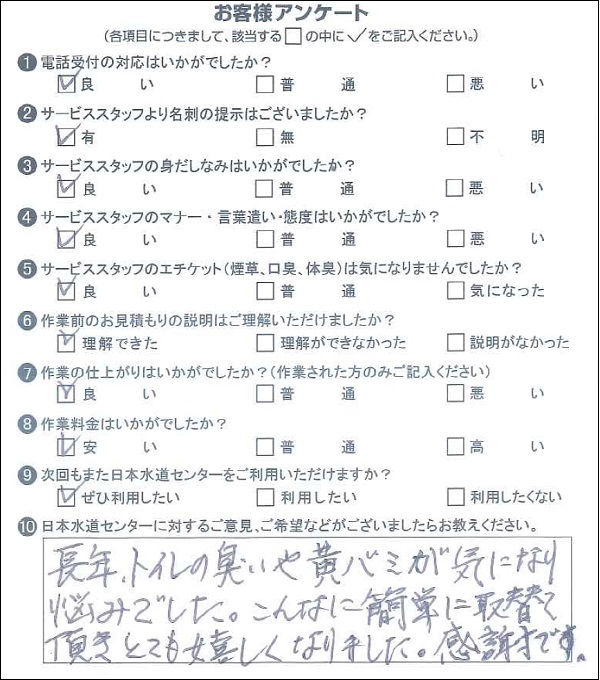 お客様アンケート
(各項目につきまして、該当する□の中に✓をご記入ください。)
❶ 電話受付の対応はいかがでしたか?
☑良い □普通 □悪い
❷ サービススタッフより名刺の提示はございましたか?
☑有 □無 □不明
❸ サービススタッフの身だしなみはいかがでしたか?
☑良い □普通 □悪い
❹ サービススタッフのマナー・言葉遣い・態度はいかがでしたか?
☑良い □普通 □悪い
❺ サービススタッフのエチケット(煙草、口臭、体臭)は気になりませんでしたか?
☑良い □普通 □気になった
❻ 作業前のお見積もりの説明はご理解いただけましたか?
☑理解できた □理解ができなかった □説明がなかった
❼ 作業の仕上がりはいかがでしたか?(作業された方のみご記入ください)
☑良い □普通 □悪い
❽ 作業料金はいかがでしたか?
☑安い □普通 □高い
❾ 次回もまた日本水道センターをご利用いただけますか?
☑ぜひ利用したい □利用したい □利用したくない
❿ 日本水道センターに対するご意見、ご希望などがございましたらお教えください。
長年、トイレの臭いや黄バミが気になり
悩みでした。こんなに簡単に取替て
頂きとても嬉しくなりました。感謝です。